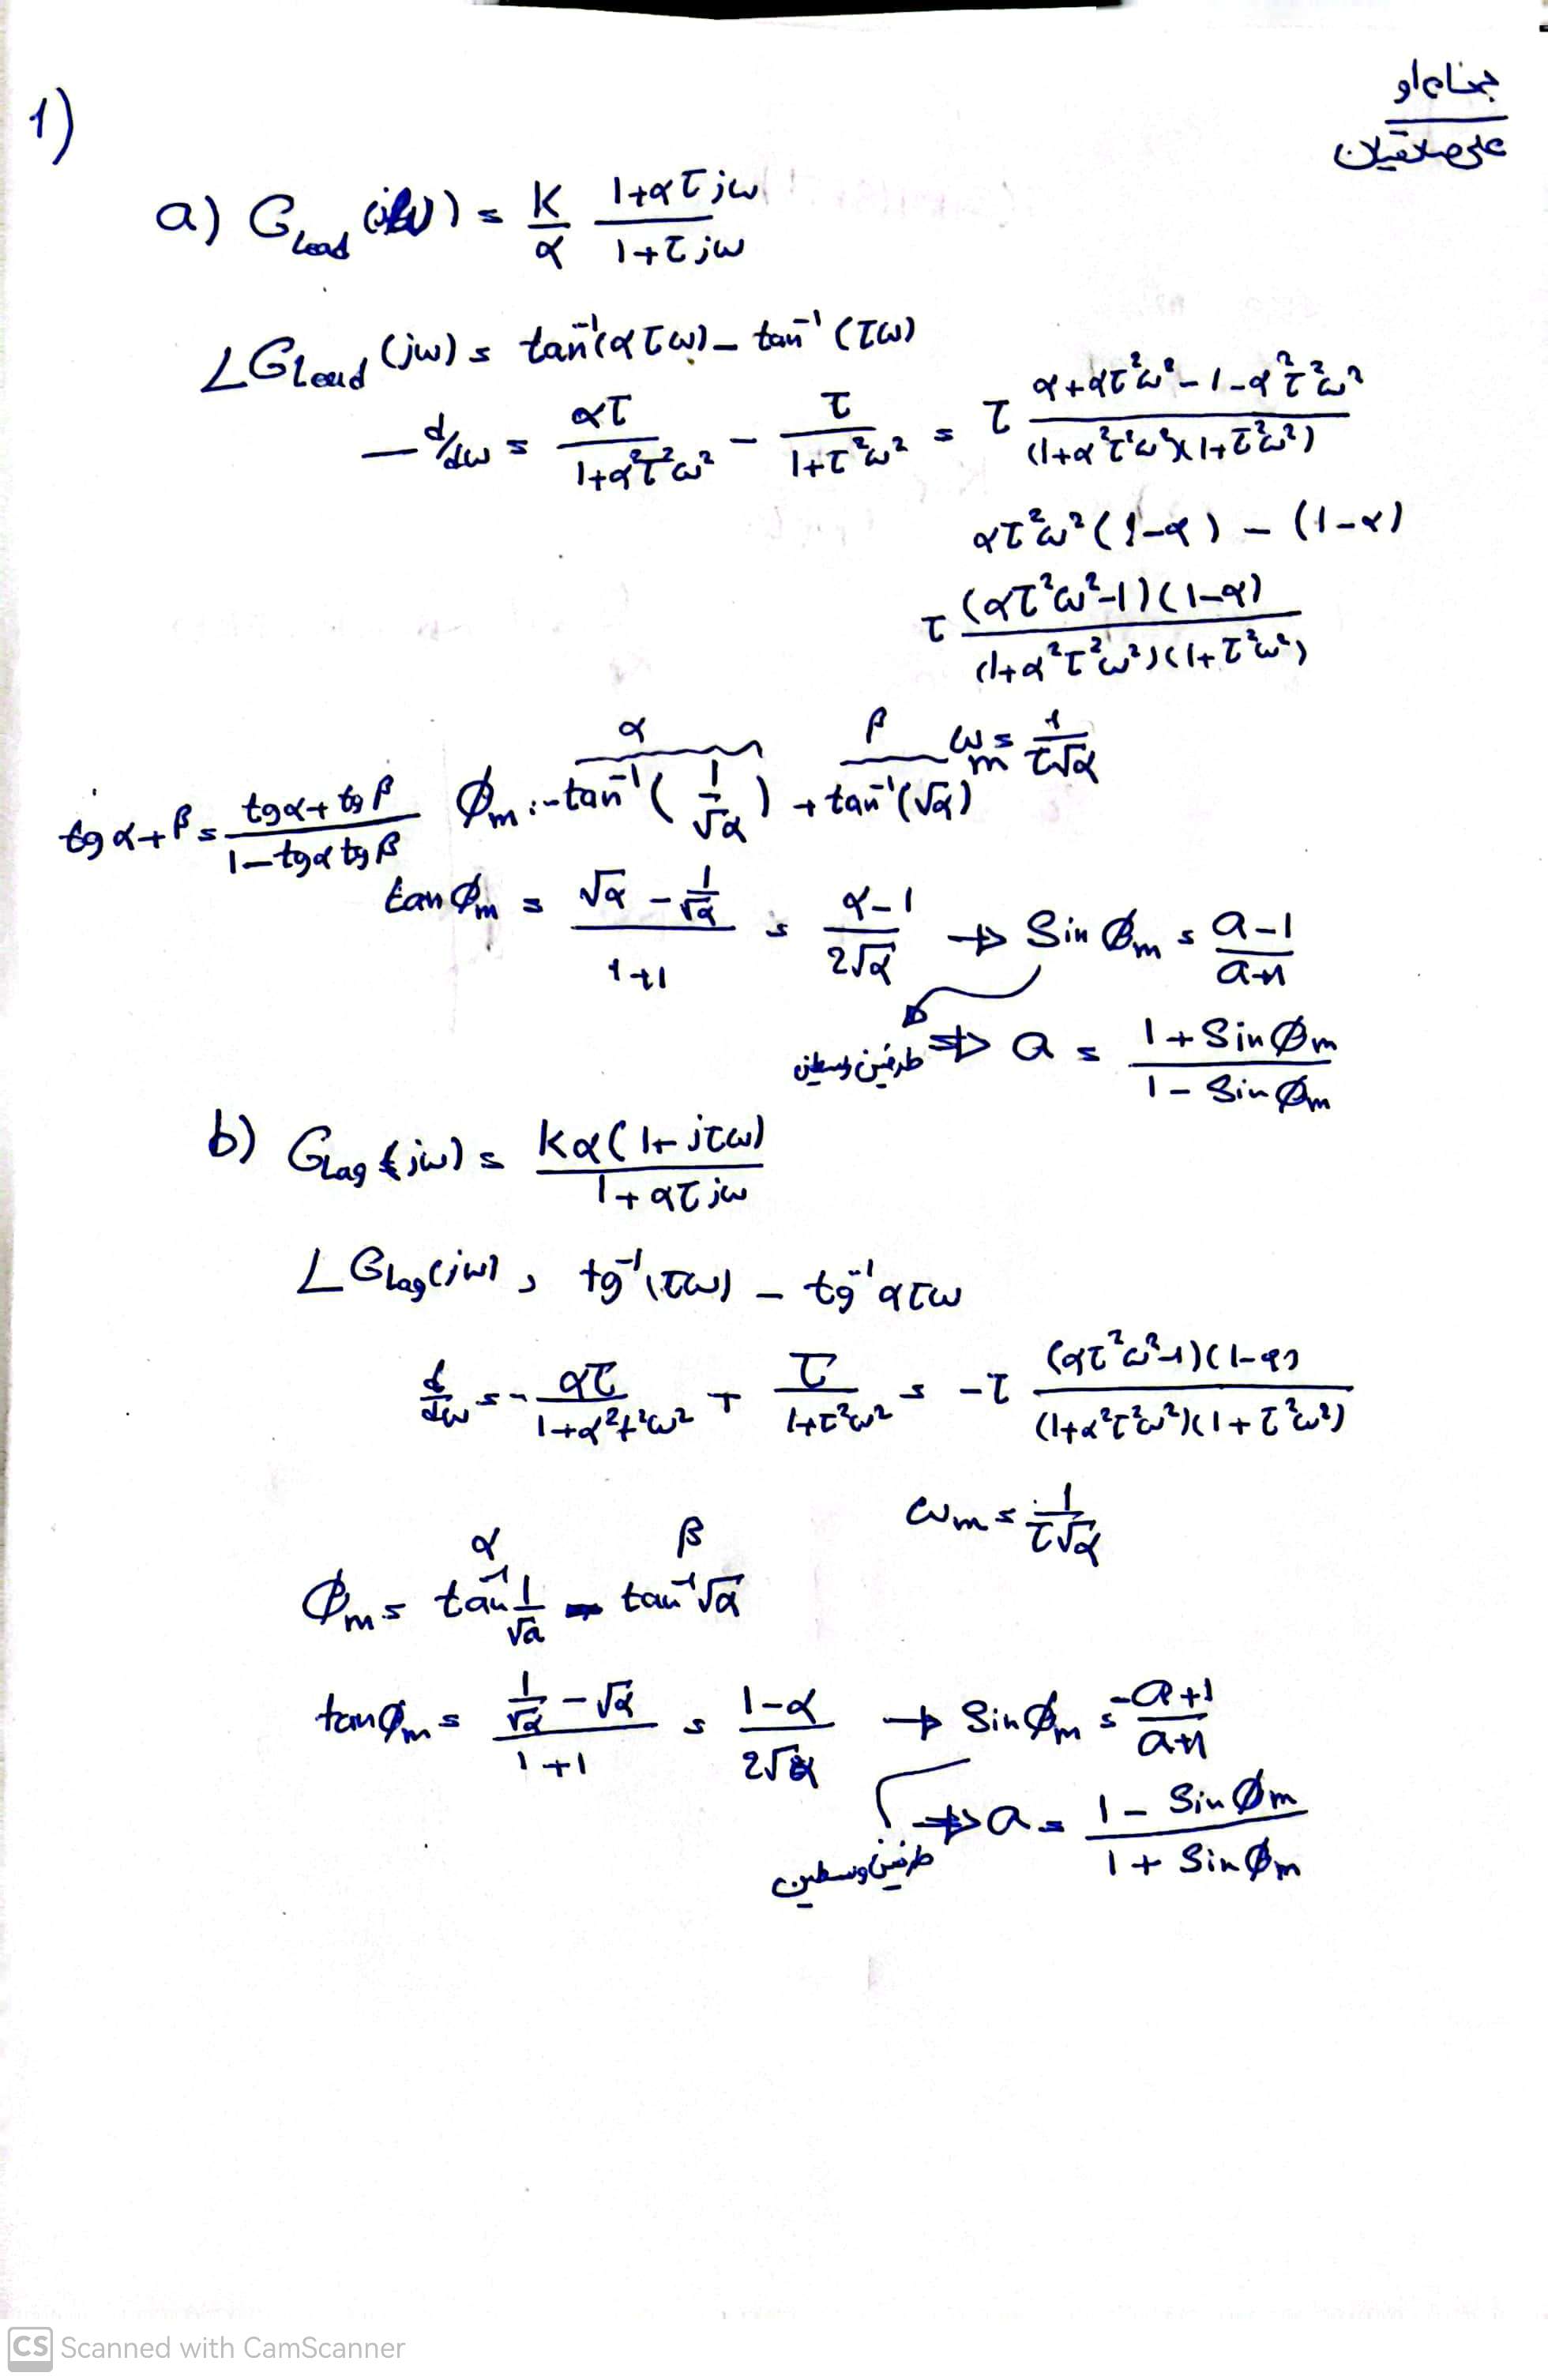 بنام او
علی صادقیان
1)
a) G_Lead (jω) = K/α (1+ατjω)/(1+τjω)
∠G_Lead (jω) = tan⁻¹(ατω) - tan⁻¹(τω)
— d/dω = ατ/(1+α²τ²ω²) - τ/(1+τ²ω²) = τ (α+ατ²ω²-1-α²τ²ω²)/((1+α²τ²ω²)(1+τ²ω²))
ατ²ω²(1-α) - (1-α)
τ (ατ²ω²-1)(1-α)/((1+α²τ²ω²)(1+τ²ω²))
α β ω_m = 1/(τ√α)
tgα+β = (tgα+tgβ)/(1-tgα tgβ) Φ_m = -tan⁻¹(1/√α) + tan⁻¹(√α)
tanΦ_m = (√α - 1/√α)/(1+1) = (α-1)/(2√α) → SinΦ_m = (a-1)/(a+1)
طرفین وسطین ⇒ a = (1+SinΦm)/(1-SinΦm)
b) G_Lag (jω) = kα(1+jτω)/(1+ατjω)
∠G_Lag(jω) = tg⁻¹(τω) - tg⁻¹ατω
d/dω = -ατ/(1+α²τ²ω²) + τ/(1+τ²ω²) = -τ (ατ²ω²-1)(1-α)/((1+α²τ²ω²)(1+τ²ω²))
ω_m = 1/(τ√α)
α β
Φ_m = tan⁻¹ 1/√a - tan⁻¹√α
tanΦ_m = (1/√α - √α)/(1+1) = (1-α)/(2√α) → SinΦ_m = (-a+1)/(a+1)
طرفین وسطین ⇒ a = (1-SinΦm)/(1+SinΦm)
CS Scanned with CamScanner